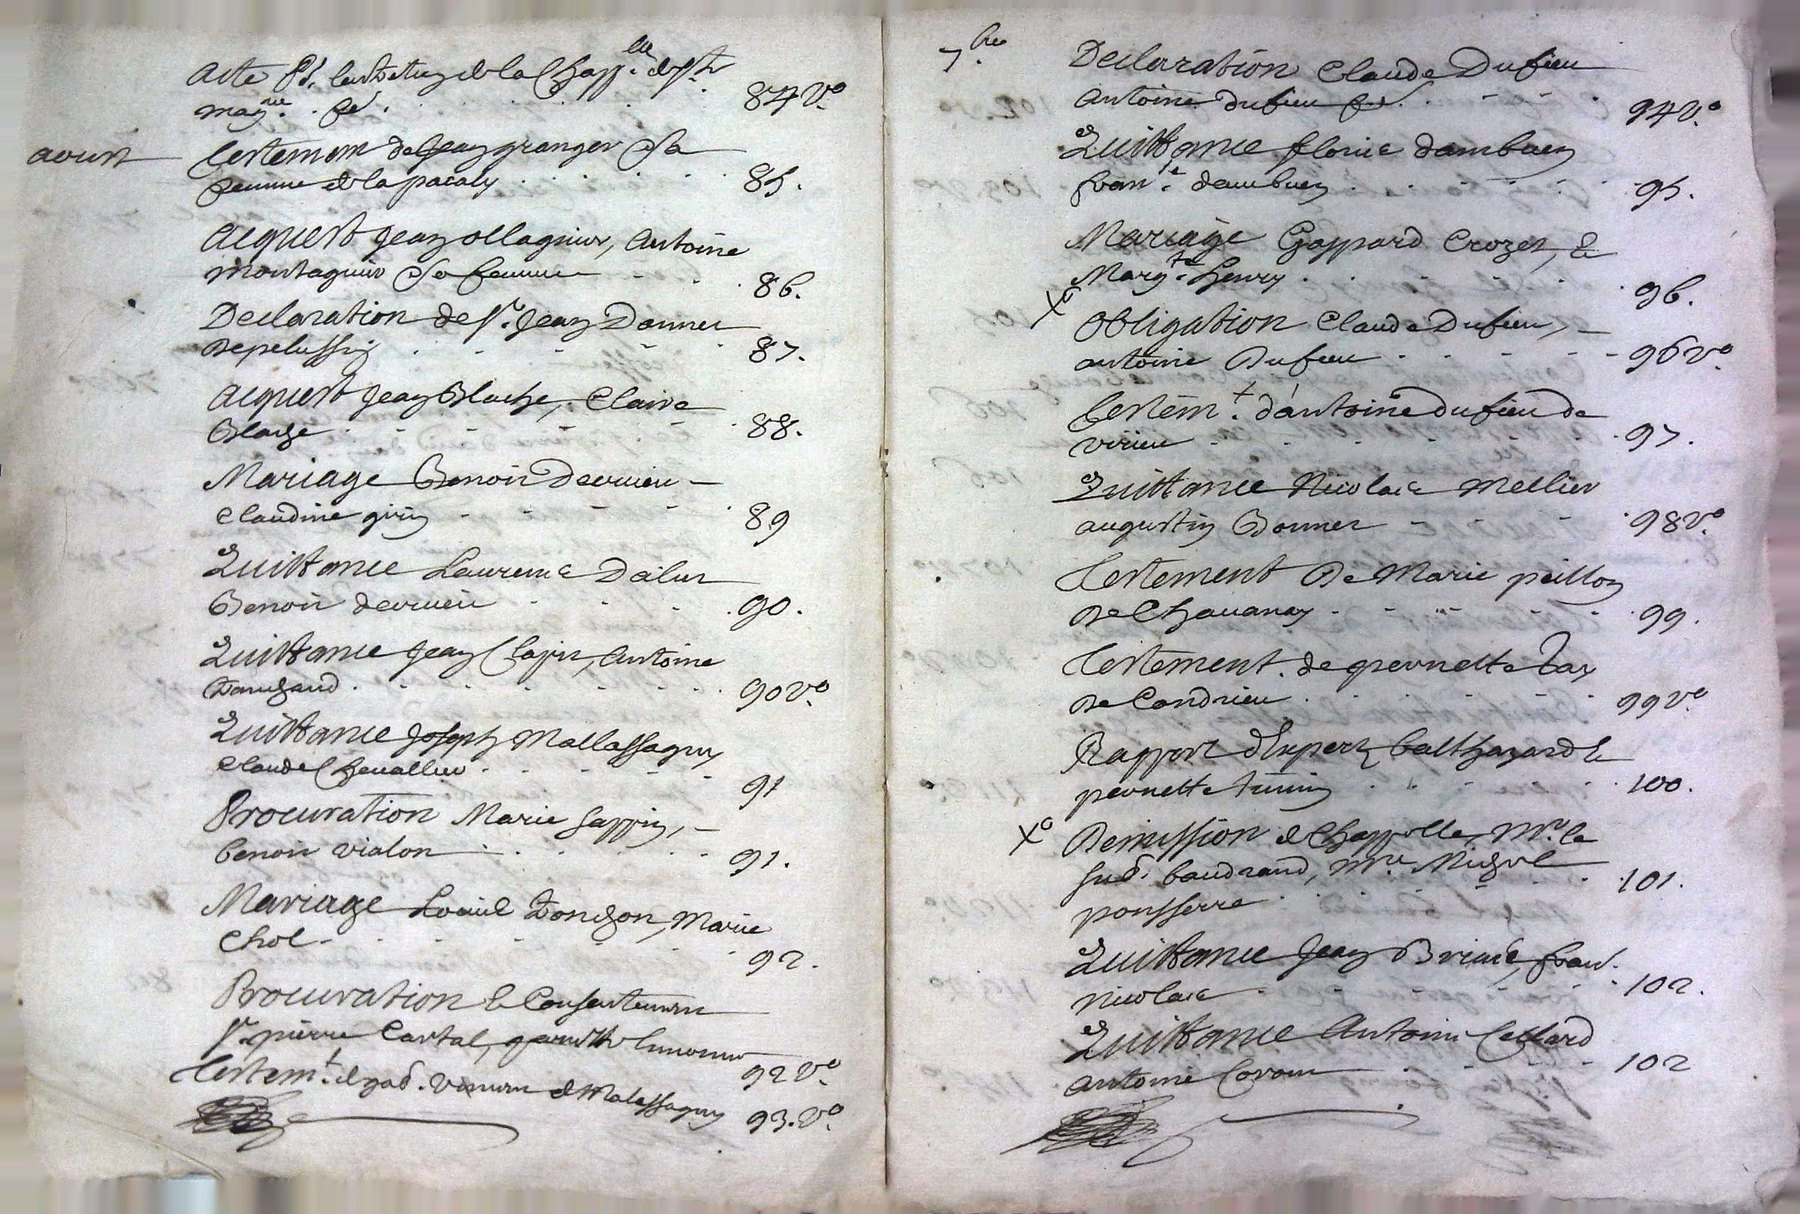 Acte Sr. de la Chapp.lle de St
84 Vo.
aoust
Testemem de Jean granger Sa
femme de la pacaly
85.
Acquest Jean ollagnier, Antoine
montagnier Sa femme
86.
Declaration de Sr. Jean Donnet
de pelussin
87.
Acquest Jean Blache, Claire
Blache
88.
Mariage Benoit Dervieu
Claudine girin
89
Quittance Laurence
Benoit dervieu
90.
Quittance Jean Chapir, Antoine
90 Vo.
Quittance Joseph Mallassagny
Claude Chevallier
91
Procuration Marie Sappin,
benoit vialon
91.
Mariage Louis Donzon, Marie
Chol
92.
Procuration & Consentemen
Sr. pierre Cartal,
92 Vo.
Testem.t de de Malassagny
93. Vo.
7.bre
Declaration Claude Dufieu
Antoine dufieu
94 Vo.
Quittance fleurie dambuen
fran.se dambuen
95.
Mariage Gaspard Crozet, &
Marg.te henry
96.
Xo
Obligation Claude Dufieu,
antoine Dufieu
96 Vo.
Testem.t d'antoine dufieu de
virieu
97.
Quittance Nicolas Mellier
augustin Bonnet
98 Vo.
Testement De Marie peillon
de Chavanay
99.
Testement de pernette
de Condrieu
99 Vo
Rapport d'Expert balthazard &
pernette
100.
Xo
Demission de Chappelle, Mre. le
baudrand, Mre. Michel
pousserre
101.
Quittance Jean Briare, fran.
Nicolas
102.
Quittance Antoine Cellard
antoine
102